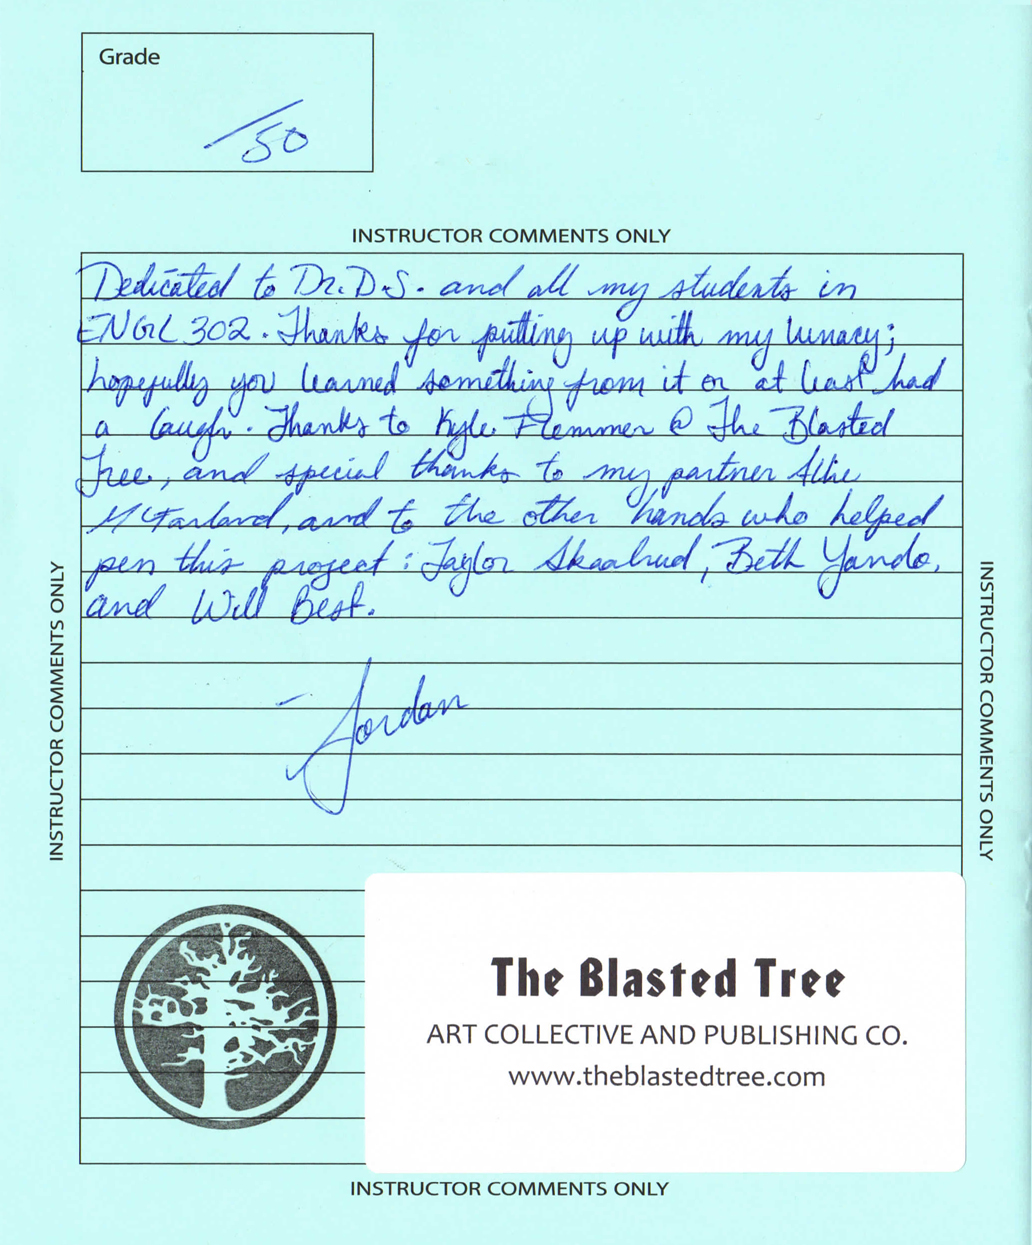 Grade
/50
INSTRUCTOR COMMENTS ONLY
Dedicated to Dr. D.S. and all my students in
ENGL 302. Thanks for putting up with my lunacy;
hopefully you learned something from it or at least had
a laugh. Thanks to Kyle Flemmer @ The Blasted
Tree, and special thanks to my partner Allie
McFarland, and to the other hands who helped
pen this project: Taylor Skaalrud, Beth Yando,
and Will Best.
- Jordan
INSTRUCTOR COMMENTS ONLY
INSTRUCTOR COMMENTS ONLY
The Blasted Tree
ART COLLECTIVE AND PUBLISHING CO.
www.theblastedtree.com
INSTRUCTOR COMMENTS ONLY